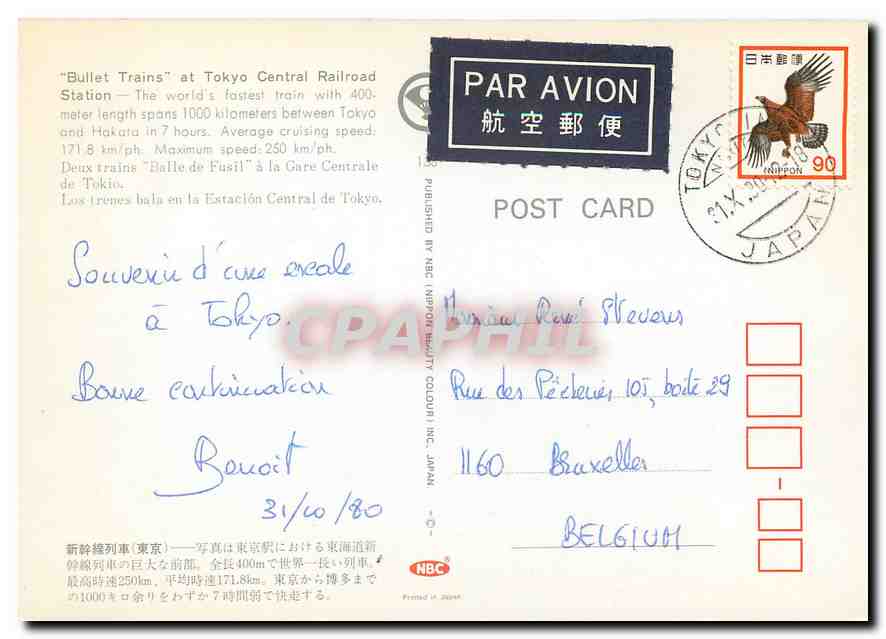 "Bullet Trains" at Tokyo Central Railroad
Station — The world's fastest train with 400-
meter length spans 1000 kilometers between Tokyo
and Hakata in 7 hours. Average cruising speed:
171.8 km/ph. Maximum speed: 250 km/ph.
Deux trains "Balle de Fusil" à la Gare Centrale
de Tokio.
Los trenes bala en la Estación Central de Tokyo.
Souvenir d'une escale
à Tokyo.
Bonne continuation
Benoit
31/10/80
新幹線列車(東京)——写真は東京駅における東海道新
幹線列車の巨大な前部。全長400mで世界一長い列車。
最高時速250km, 平均時速171.8km。東京から博多まで
の1000キロ余りをわずか7時間弱で快走する。
PUBLISHED BY NBC (NIPPON BEAUTY COLOUR) INC. JAPAN
NBC
Printed in Japan
PAR AVION
航空郵便
日本郵便
90
NIPPON
TOKYO
31.X.80
JAPAN
POST CARD
Monsieur René Stevens
Rue des Pêcheries 105, boîte 29
1160 Bruxelles
BELGIUM
CPAPHIL